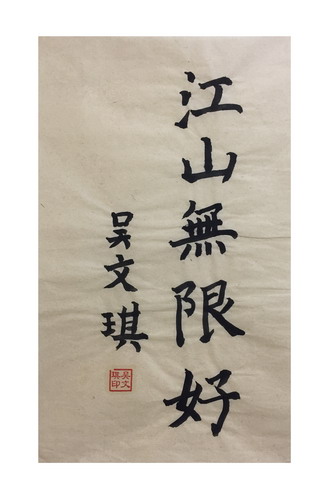 江山無限好
吳文琪
吳文琪印